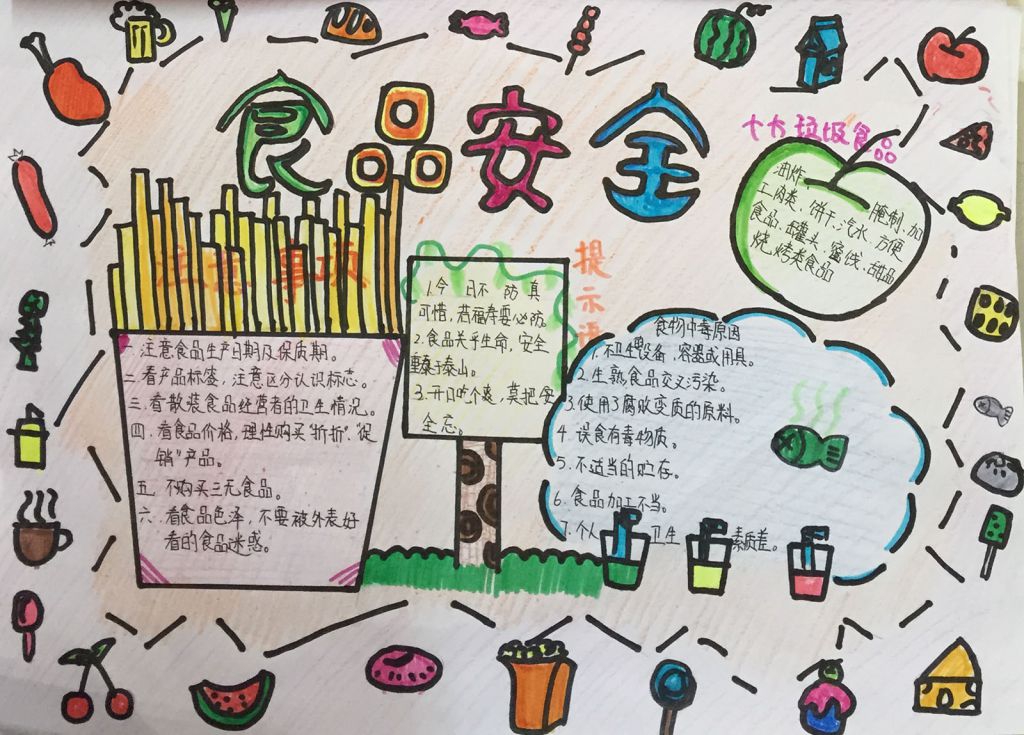 食品安全
十大垃圾食品
油炸、腌制、加
工肉类、饼干、汽水、方便
食品、罐头、蜜饯、甜品
烧烤类食品
注意事项
一.注意食品生产日期及保质期。
二.看产品标签，注意区分认识标志。
三.看散装食品经营者的卫生情况。
四.看食品价格，理性购买“打折”“促
销”产品。
五.不购买三无食品。
六.看食品色泽，不要被外表好
看的食品迷惑。
提示语
1.今日不防真
可惜，若福寿要必防。
2.食品关乎生命，安全
于泰山。
3.开口吃个爽，莫把安
全忘。
食物中毒原因
1.不卫生设备，容器或用具。
2.生熟食品交叉污染。
3.使用了腐败变质的原料。
4.误食有毒物质。
5.不适当的贮存。
6.食品加工不当。
7.个人卫生素质差。